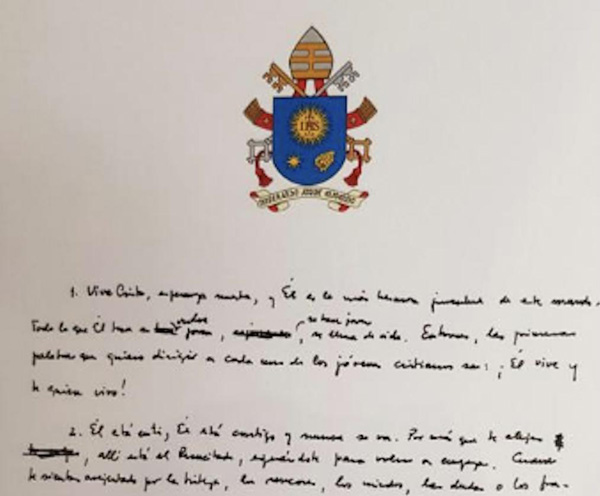 IHS
MISERANDO ATQUE ELIGENDO
1. Vive Cristo, esperanza nuestra, y Él es la más hermosa juventud de este mundo.
Todo lo que Él toca se vuelve joven, se hace, se llena de vida. Entonces, las primeras
palabras que quiero dirigir a cada uno de los jóvenes cristianos son: ¡Él vive y
te quiere vivo!
2. Él está en ti, Él está contigo y nunca se va. Por más que te alejes
, allí está el Resucitado, esperándote para volver a empezar. Cuando
te sientas avejentado por la tristeza, los rencores, los miedos, las dudas o los fra-